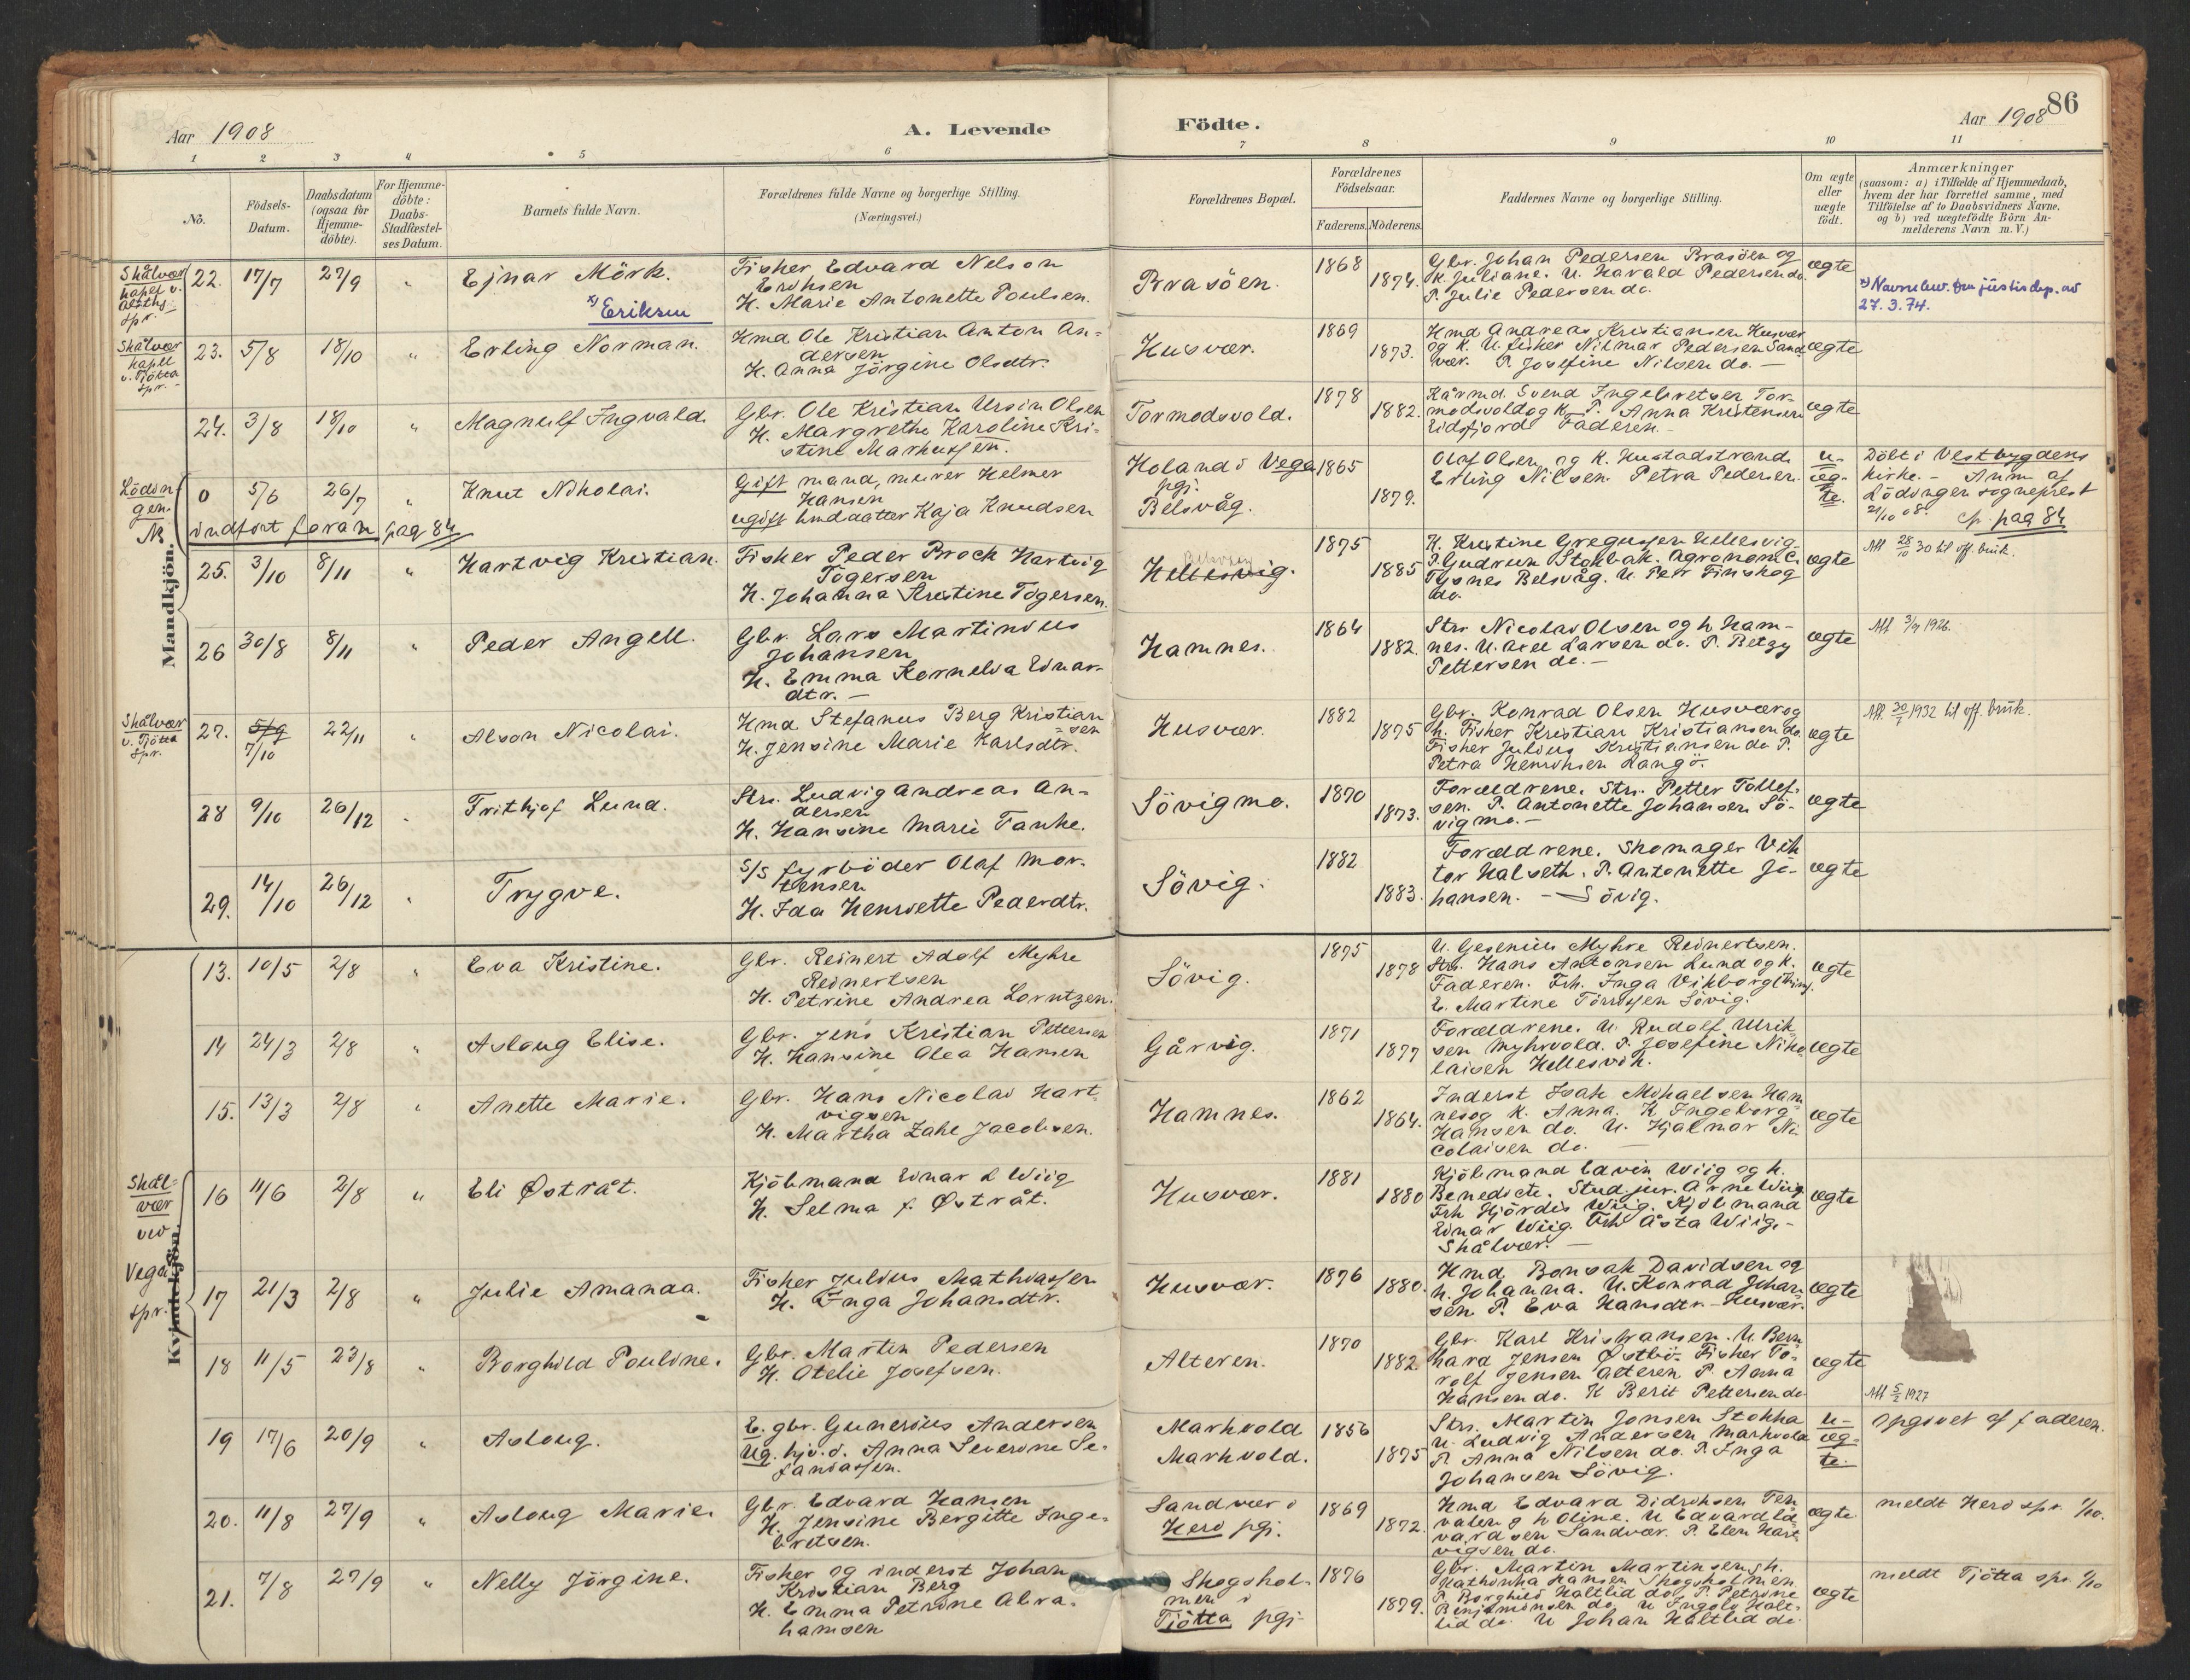 86
Aar 1908
A. Levende
Födte.
Aar 1908
1 2 3 4 5 6 7 8 9 10 11
No.
Födsels-
Datum.
Daabsdatum
(ogsaa for
Hjemme-
döbte).
For Hjemme-
döbte:
Daabs-
Stadfæstel-
ses Datum.
Barnets fulde Navn.
Forældrenes fulde Navne og borgerlige Stilling.
(Næringsvei.)
Forældrenes Bopæl.
Forældrenes
Födselsaar.
Faderens. Möderens.
Faddernes Navne og borgerlige Stilling.
Om ægte
eller
uægte
födt.
Anmærkninger
(saasom: a) i Tilfælde af Hjemmedaab,
hvem der har forrettet samme, med
Tilföielse af to Daabsvidners Navne,
og b) ved uægtefödte Börn An-
melderens Navn m. V.)
Mandkjön.
Skålvær
kapel v.
Alsthg.
spr.
22. 17/7 27/9 " Ejnar Mörk.
x) Eriksen
Fisker Edvard Nelson
Eriksen
H. Marie Antonette Poulsen.
Brasöen.
1868
1874.
Gbr. Johan Pedersen Brasöen og
K. Juliane. U. Harald Pedersen do.
P. Julie Pedersen do.
ægte
x) Navnebev. fra justisdep. av
27.3.74.
Skålvær
kapel
v. Tjötta
spr.
23. 5/8 18/10 Erling Norman.
Hmd Ole Kristian Anton An-
dersen
H. Anna Jörgine Olsdtr.
Husvær.
1869
1873.
Hmd Andreas Kristiansen Husvær
og K. U. fisker Nilmar Pedersen Sand
vær. P. Josefine Nilsen do. —
ægte
24. 3/8 18/10 " Magnulf Ingvald.
Gbr. Ole Kristian Ursin Olsen
H. Margrethe Karoline Kri-
stine Markussen.
Tormodsvold.
1878
1882.
Kårmd. Svend Ingebretsen Tor-
modsvold og K. P. Anna Kristensen
Eidsfjord Faderen. -
ægte
Lödin
gen.
0 5/6 26/7 " Knut Nikolai.
indfört foran pag 84
Gift mand, murer Helmer
Hansen
ugift hmddatter Kaja Knudsen
Holand i Vega
pgj.
Belsvåg.
1865
1879.
Olaf Olsen og K. Hustadstrand
Erling Nilsen. Petra Pedersen.
u-
æg-
te.
Döbt i Vestbygdens
kirke. - Anm af
Lödingen sogneprest
21/10 08. cfr. pag 84
25. 3/10 8/11 " Hartvig Kristian.
Fisker Peder Brock Hartvig
Togersen
H. Johanna Kristine Togersen.
Belsvåg
Hellesvig.
1875
1885
K. Kristine Gregussen Hellesvig.
P. Gudrun Stokbak. Agronom C.
Tysnes Belsvåg. U. Petr Finskog
do.
ægte
Att 28/10 30 til off. bruk.
26 30/8 8/11 " Peder Angell.
Gbr. Lars Martinius
Johansen
H. Emma Kornelia Einar-
dtr. —
Hamnes.
1864
1882.
Str. Nicolai Olsen og h Ham-
nes. U. Axel Larsen do. P. Betzy
Pettersen do. —
ægte
Att 3/9 1926.
Skålvær
v. Tjötta
spr.
27. 5/9
7/10
22/11 " Alson Nicolai.
Hmd. Stefanus Berg Kristian
sen
H. Jensine Marie Karlsdtr.
Husvær.
1882
1875
Gbr. Konrad Olsen Husvær og
h. Fisker Kristian Kristiansen do.
Fisker Julius Kristiansen do P.
Petra Henriksen Langö.
ægte
Att. 1932 til off. bruk.
28 9/10 26/12 " Frithjof Lund.
Strs. Ludvig Andreas An-
dersen
H. Hansine Marie Fanke.
Sövigmo.
1870
1873.
Forældrene. Strs. Petter Tollef-
sen. P. Antonette Johansen Sö-
vigmo. —
ægte
29. 14/10 26/12 " Trygve.
S/S fyrböder Olaf Mor-
tensen
H. Ida Henriette Pederdtr.
Sövig.
1882
1883.
Forældrene. Skomager Vik
tor Halseth. P. Antonette Jo-
hansen. — Sövig.
ægte
Kvindekjön.
13. 10/5 2/8 " Eva Kristine.
Gbr. Reinert Adolf Myhre
Reinertsen
H. Petrine Andrea Lorntzen.
Sövig.
1875
1878
U. Gesenius Myhre Reinertsen.
Strs. Hans Antonsen Lund og K.
Faderen. Frk. Inga Vikborg
E. Martine Törrissen Sövig.
ægte
14 24/3 2/8 " Aslaug Elise.
Gbr. Jens Kristian Pettersen
H. Hansine Olea Hansen
Gårvig.
1871
1877
Forældrene. U. Rudolf Ulrik
sen Myhrvold. P. Josefine Niko
laisen Hellesvik.
ægte
15. 13/3 2/8 " Anette Marie.
Gbr. Hans Nicolai Hart
vigsen
H. Martha Zahl Jacobsen.
Hamnes.
1862
1864.
Inderst Isak Mikaelsen Ham
nes og K. Anna. K Ingeborg
Hansen do. U. Hjalmar Ni-
colaisen do. —
ægte
Skål-
vær
ved
Vega
spr.
16 11/6 2/8 " Eli Østråt.
Kjöbmand Einar L Wiig
H. Selma f. Østråt.
Husvær.
1881
1880
Kjöbmand Edvin Wiig og h.
Benedicte. Stud. jur. Arne Wiig
Frk Hjördis Wiig. Kjöbmand
Einar Wiig Frk Åsta Wiig. -
Skålvær. —
ægte
17 21/3 2/8 " Julie Amanda.
Fisker Julius Mathiassen
H. Inga Johansdtr.
Husvær.
1876
1880.
Hmd. Bonsak Davidsen og
h. Johanna. U. Konrad Johan-
sen P. Eva Hansdtr. - Husvær.
ægte
18 11/5 23/8 " Borghild Pouline.
Gbr. Martin Pedersen
H. Otelie Josefsen.
Alteren.
1870
1882.
Gbr. Karl Kristiansen. U. Bern
hard Jensen Østbö. Fisker To-
rolf Jensen Alteren P. Anna
Hansen do. K Berit Pettersen do
ægte
Att 5/2 1927
19 17/6 20/9 " Aslaug.
E. gbr. Gunerius Andersen
Ug. hjv. d. Anna Severine Se-
faniassen.
Markvold
Markvold.
1856
1875
Strs. Martin Jonsen Stokka
U. Ludvig Andersen Markvold
P. Anna Nilsen do. P. Inga
Johansen Sövig.
u-
æg-
te.
Opgivet af faderen.
20. 11/8 27/9 " Aslaug Marie.
Gbr. Edvard Hansen
H. Jensine Bergitte Inge-
bretsen.
Sandvær i
Herö pgj.
1869
1872.
Hmd Edvard Didriksen Ten
valen og h Oline. U Edvard Ed-
vardsen Sandvær. P. Elen Hart-
vigsen do.
ægte
meldt Herö spr. 1/10.
21. 7/8 27/9 " Nelly Jörgine.
Fisker og inderst Johan
Kristian Berg
H. Emma Petrine Abra-
hamsen
Skogshol-
men i
Tjötta pgj-
1876
1879.
Gbr. Martin Martinsen og h.
Kathinka Hansen Skogsholmen
P. Borghild Haltlid do. P. Petrine
Benjaminsen do. U Ingolv Halt-
lid do. U Johan Haltlid do.
ægte
meldt Tjötta spr. 1/10